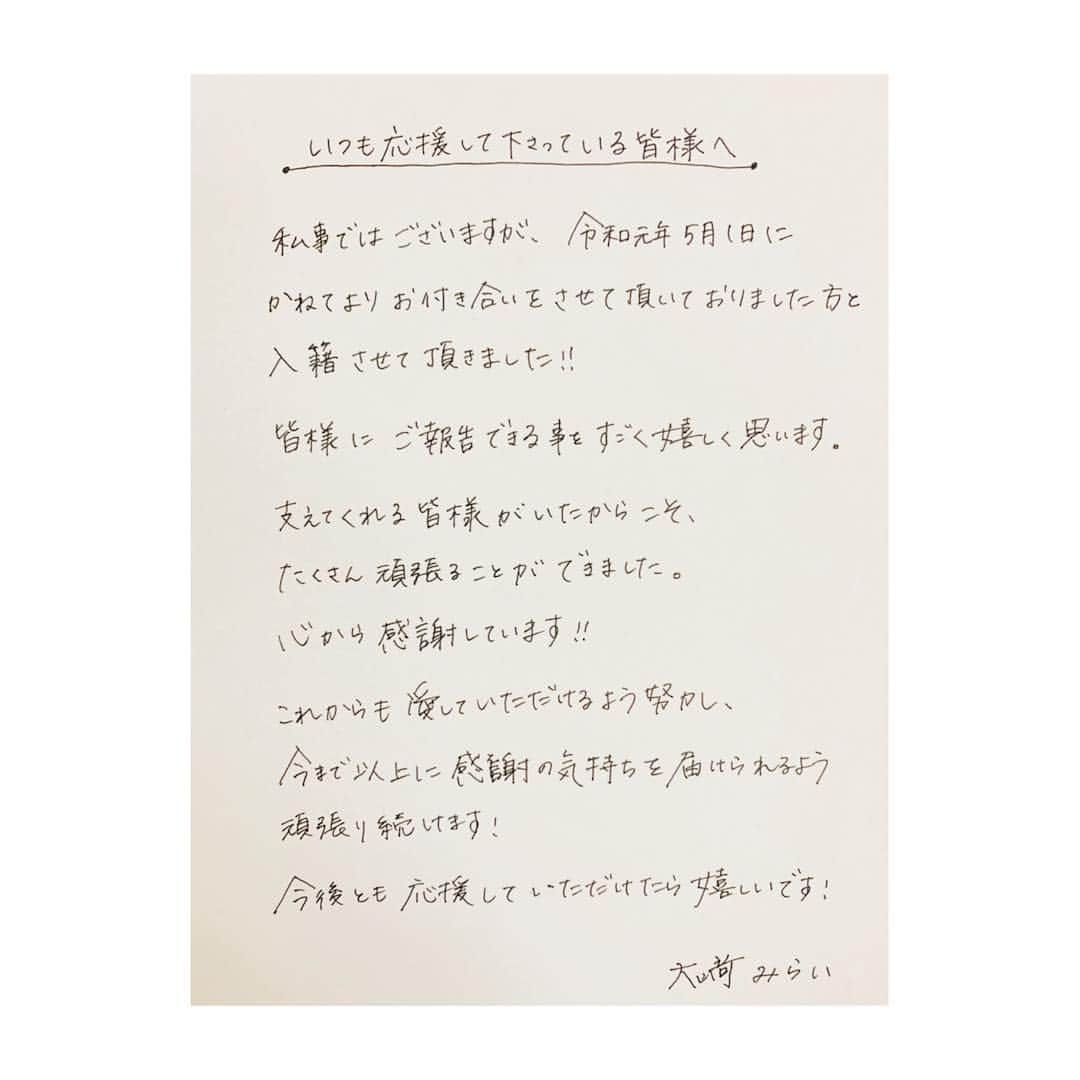 いつも応援して下さっている皆様へ
私事ではございますが、令和元年5月1日に
かねてよりお付き合いをさせて頂いておりました方と
入籍させて頂きました!!
皆様にご報告できる事をすごく嬉しく思います。
支えてくれる皆様がいたからこそ、
たくさん頑張ることができました。
心から感謝しています!!
これからも愛していただけるよう努力し、
今まで以上に感謝の気持ちを届けられるよう
頑張り続けます!
今後とも応援していただけたら嬉しいです!
大崎みらい